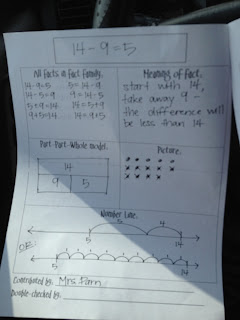 14-9=5
All facts in fact family.
14-9=5 5=14-9
14-5=9 9=14-5
5+9=14 14=5+9
9+5=14 14=9+5
Meaning of fact.
start with 14,
take away 9 -
the difference will
be less than 14
Part-Part-Whole model.
14
9 5
Picture.
Number Line.
5 4
5 14
OR
5 14
Contributed by: Mrs.
Double-checked by: